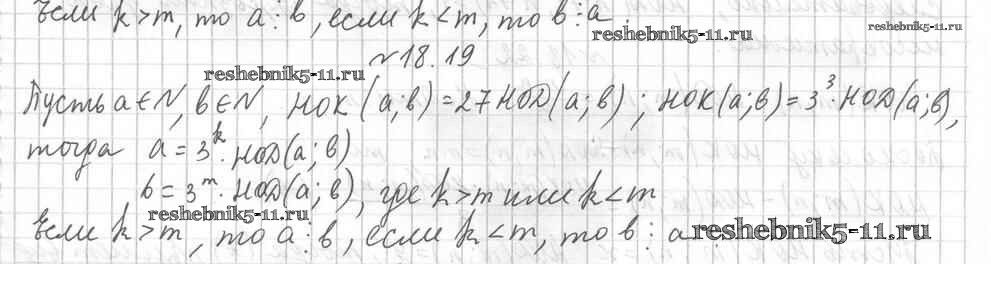 Если k > m, то a ⋮ в, если k < m, то в ⋮ a.
reshebnik5-11.ru
reshebnik5-11.ru
№18.19
reshebnik5-11.ru
Пусть a ∈ N, в ∈ N, НОК(a; в) = 27 НОД(a; в); НОК(a; в) = 3³ · НОД(a; в),
тогда a = 3ᵏ · НОД(a; в)
в = 3ᵐ · НОД(a; в), где k > m или k < m
reshebnik5-11.ru
Если k > m, то a ⋮ в, если k < m, то в ⋮ a
reshebnik5-11.ru